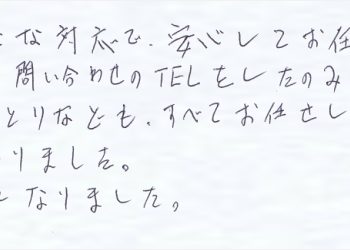 な対応で、安心してお任
問い合わせのTELをしたのみ
とりなども、すべてお任せし
りました。
となりました。